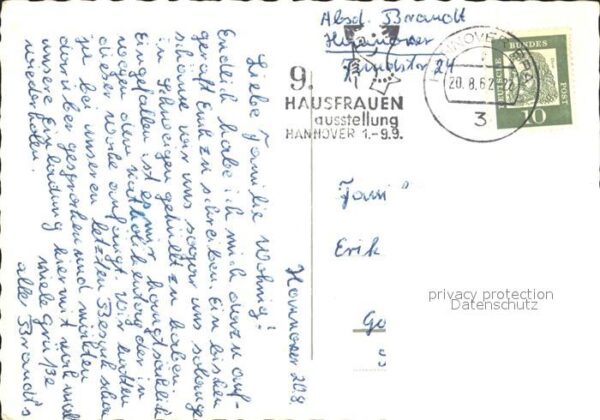 Absd. Brandt
Hannover
24
9.
HAUSFRAUEN
ausstellung
HANNOVER 1.-9.9.
HANNOVER
20.8.62
3
DEUTSCHE BUNDES POST
10
Hannover 20.8.
Liebe Familie Wohnig!
Endlich habe ich mich dazu auf
gerafft Euch zu schreiben. Ein bisschen
schäme wir uns sogar uns solange
in Schweigen gehüllt zu haben.
Eingefallen ist es mir hauptsächlich
wegen dem der in
dieser Woche anfängt. Wir hatten
ja bei unserem letzten Besuch schon
darüber gesprochen und möchten
unsere Einladung hiermit noch mal
wiederholen.
viele Grüße
alle Brandt's
Fami
Erik
Ge
privacy protection
Datenschutz